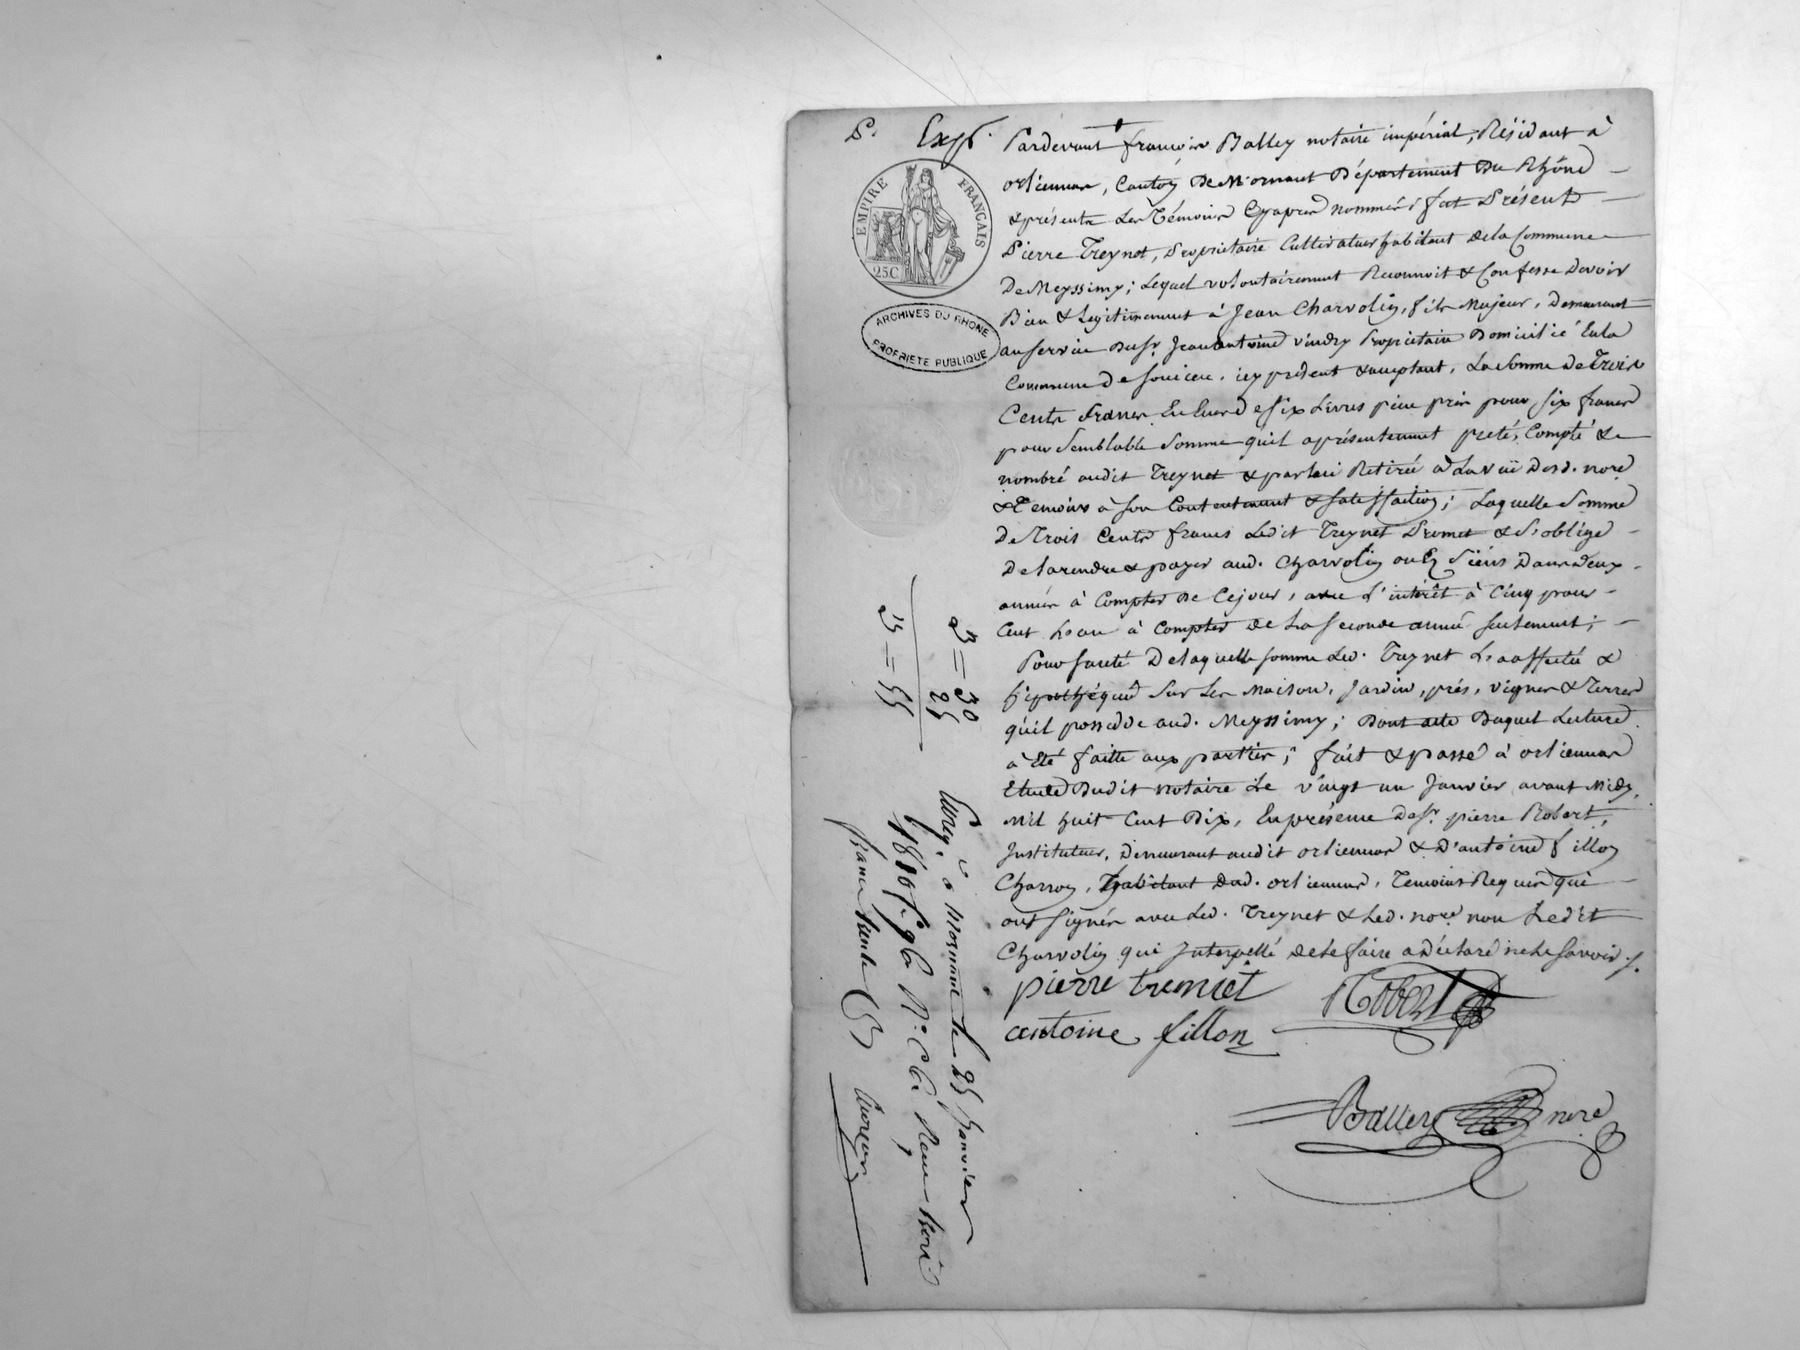 Exp.
EMPIRE FRANÇAIS
25C
ARCHIVES DU RHONE
PROPRIETE PUBLIQUE
Pardevant françois Balley notaire impérial, Résidant à
orliennas, Canton De Mornant Département Du Rhône
& présents Les Témoins Cyaprès nommés fut Présent
Pierre Treynet, Propriétaire Cultivateur habitant dela Commune
De Meyssimy; Lequel volontairement Reconnoit & Confesse Devoir
Bien & Legitimement à Jean Charvolin, fils Majeur, Demeurant
au service du Sr. Jean antoine vindry Propriétaire Domicilié En la
Commune De soucieu, icy présent & acceptant, La somme De Trois
Cents francs En Ecus De six Livres pièce pris pour six francs
pour semblable somme quil a présentement preté, Compté &
nombré audit Treynet & par lui Retirée à La vüe Desd. nore
& Temoins à son Contentement & satisfaction; Laquelle somme
De Trois Cents francs Ledit Treynet Promet & s'oblige
De la rendre & payer aud. Charvolin ou Ez siens Dans deux
années à Compter De Cejour, avec L'intérêt à Cinq pour
Cent L'an à Compter de La seconde année seulement;
Pour sureté De laquelle somme Led. Treynet L'a affectée &
hipothéquée sur Les Maison, Jardin, prés, vignes & Terres
qu'il possede aud. Meyssimy; Dont acte Duquel Lecture
à Eté faitte aux parties; fait & passé à orliennas
Etude Dudit notaire Le vingt un Janvier avant Midy,
Mil huit Cent Dix, En présence De Sr. pierre Robert,
Instituteur, Demeurant audit orliennas & D'antoine fillon
Charron, habitant Dud. orliennas, Temoins Requis qui
ont signés avec Led. Treynet & Led. nore non Ledit
Charvolin qui Interpellé de le faire a Déclaré ne le savoir.
pierre treniet
Robert
antoine fillon
Balley nore
3 = 30
25
3 = 55
Enreg. à Mornant le 25 Janvier
1810 f. 96 Ro. C 6. Reçu trois
francs trente